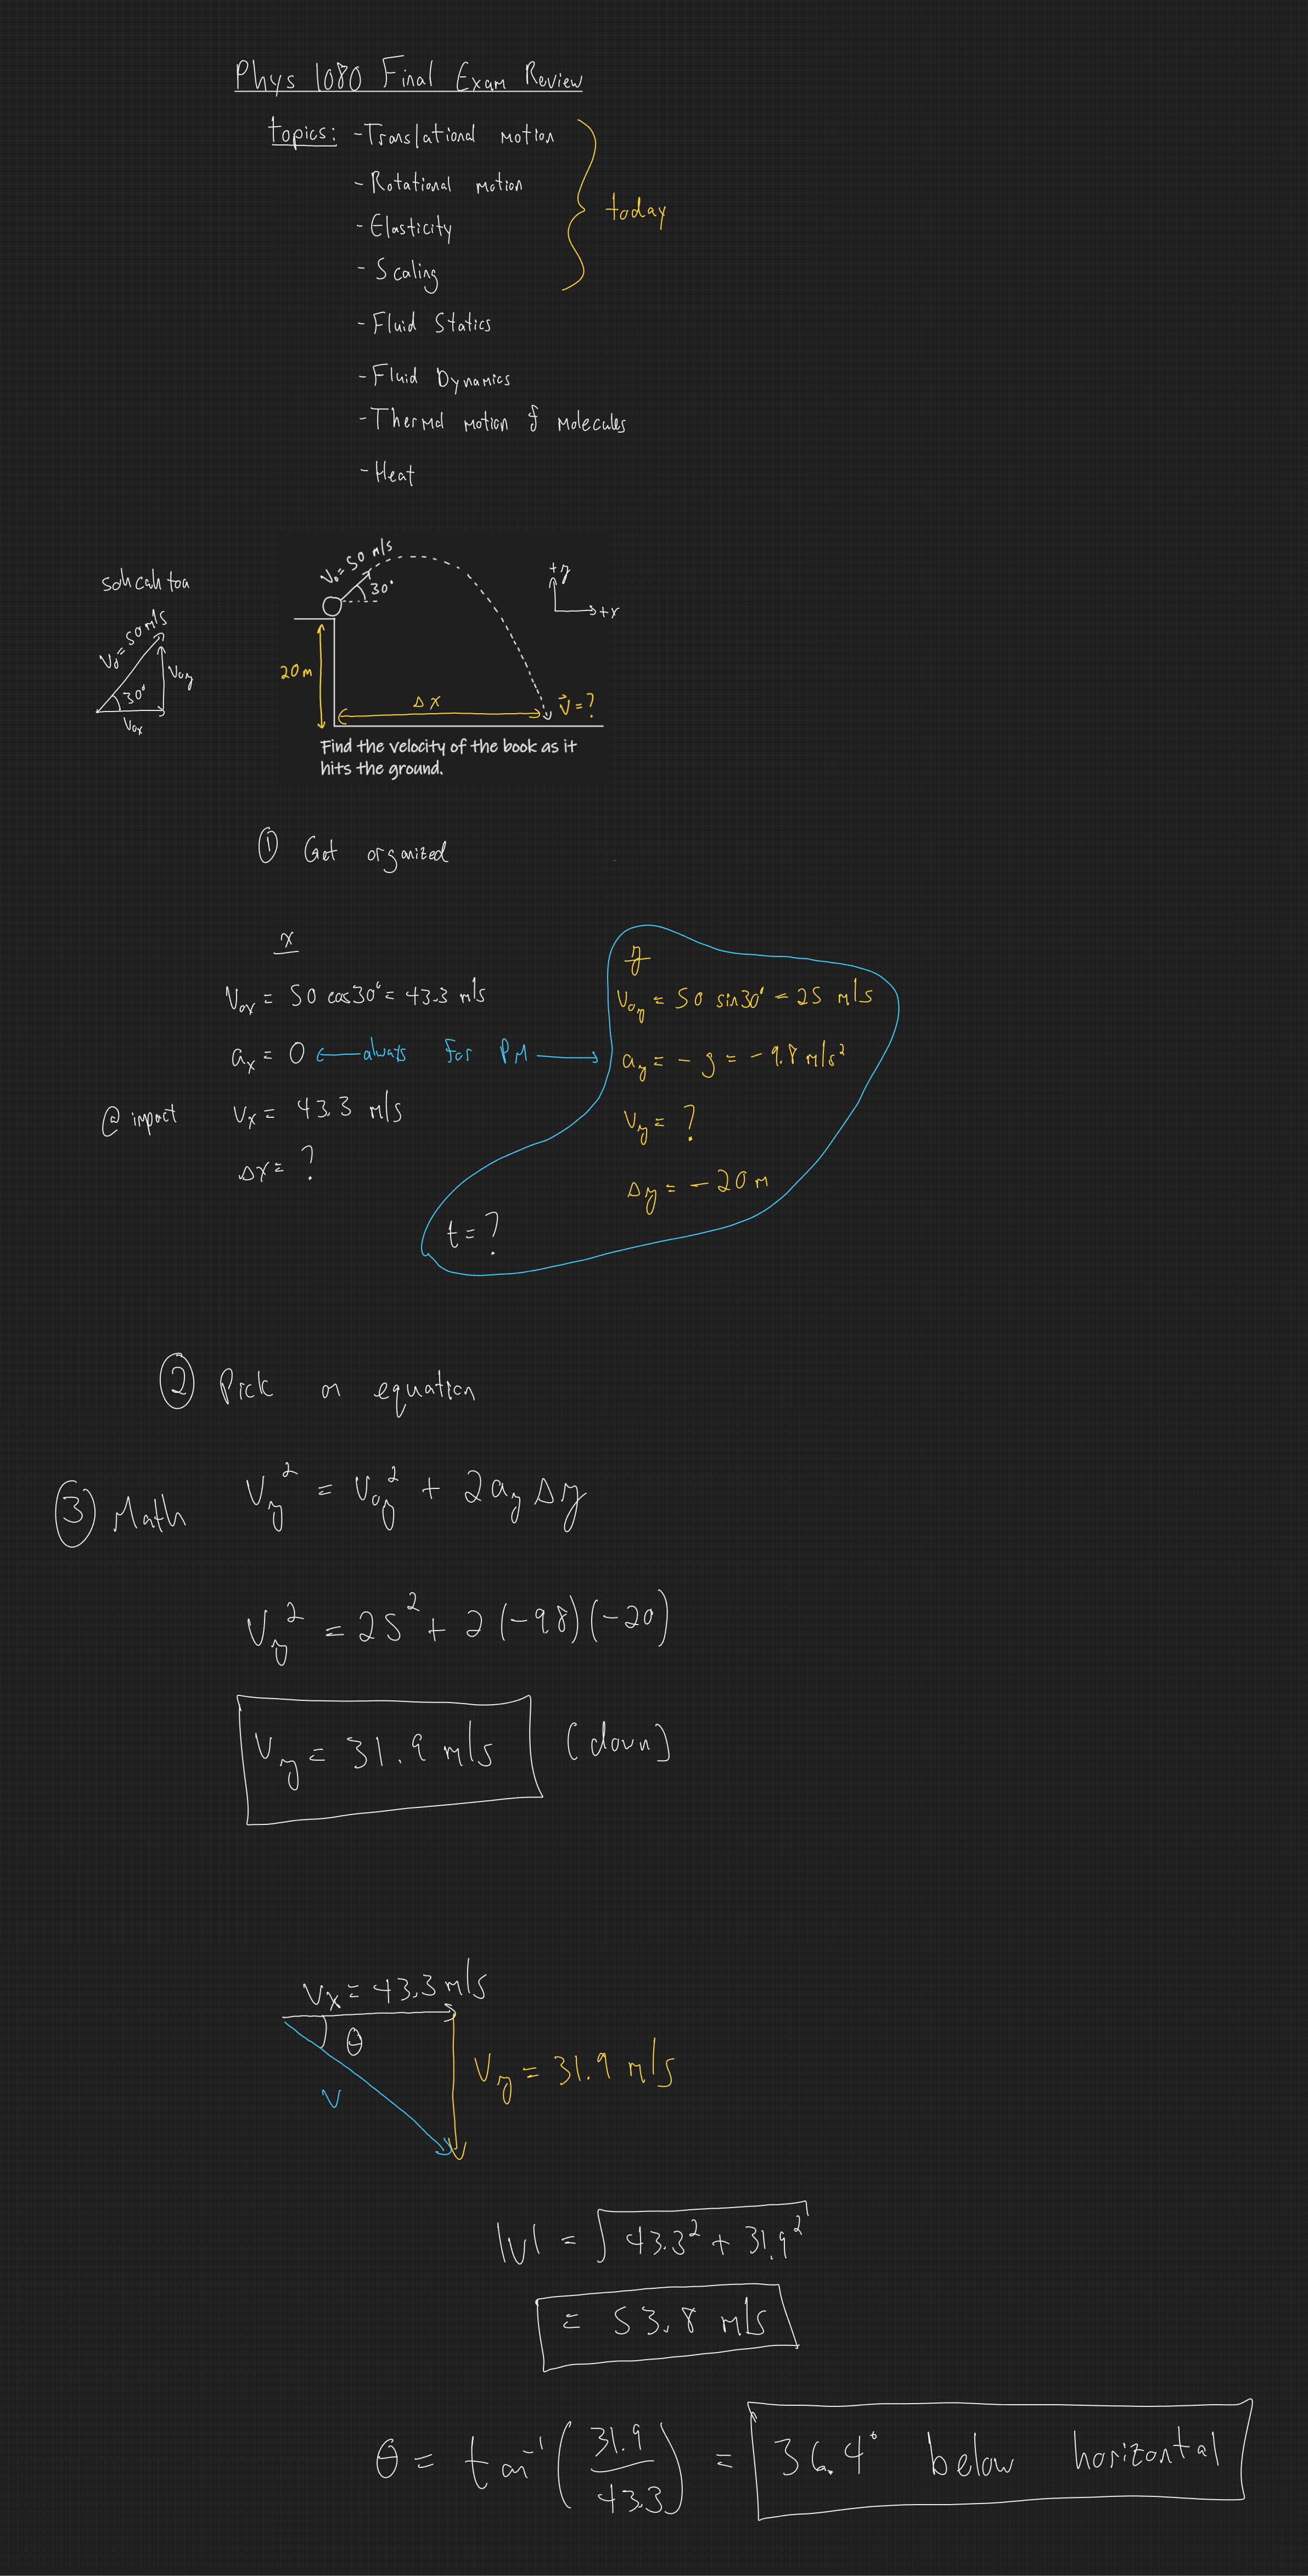 Phys 1080 Final Exam Review
topics: - Translational motion
- Rotational motion
- Elasticity
- Scaling
today
- Fluid Statics
- Fluid Dynamics
- Thermal motion of molecules
- Heat
sohcahtoa
V₀ = 50 m/s
30°
V₀y
V₀x
V₀ = 50 m/s
30°
+y
+x
20 m
Δx
V⃗ = ?
Find the velocity of the book as it
hits the ground.
① Get organized
x
V₀x = 50 cos30° = 43.3 m/s
ax = 0 ← always for PM →
@ impact Vx = 43.3 m/s
Δx = ?
y
V₀y = 50 sin30° = 25 m/s
ay = -g = -9.8 m/s²
Vy = ?
Δy = -20 m
t = ?
② Pick an equation
③ Math Vy² = V₀y² + 2ayΔy
Vy² = 25² + 2(-9.8)(-20)
Vy = 31.9 m/s (down)
Vx = 43.3 m/s
θ
V
Vy = 31.9 m/s
|V| = √43.3² + 31.9²
= 53.8 m/s
θ = tan⁻¹(31.9/43.3) = 36.4° below horizontal